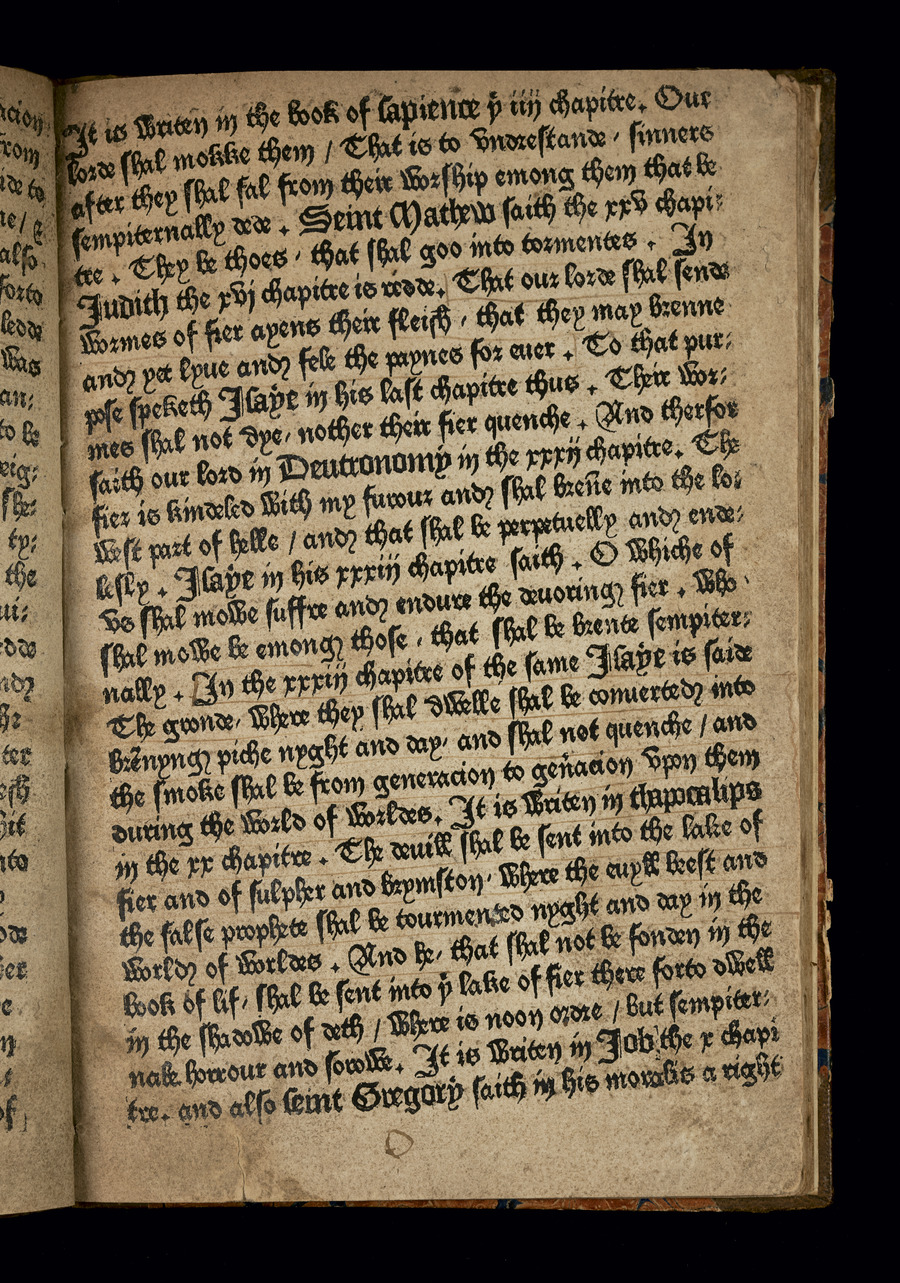 It is writen in the book of sapience ẏ iiij chapitre. Our
lorde shal mokke them / That is to vndrestande, sinners
after they shal fal from their worship emong them that be
sempiternally dede. Seint Mathew saith the xxv chapi:
tre. They be thoes, that shal goo into tormentes. In
Judith the xvj chapitre is redde. That our lorde shal sende
wormes of fier ayens their fleish, that they may brenne
and yet lyue and fele the paynes for euer. To that pur:
pose speketh Isaye in his last chapitre thus. Their wor:
mes shal not dye, nother their fier quenche. And therfor
saith our lord in Deutronomy in the xxxij chapitre. The
fier is kindeled with my furour and shal breñe into the lo:
west part of helle / and that shal be perpetuelly and ende:
lesly. Isaye in his xxxiij chapitre saith. O whiche of
vs shal mowe suffre and endure the deuoring fier. Who
shal mowe be emong those, that shal be brente sempiter:
nally. In the xxxiij chapitre of the same Isaye is saide
The gronde, where they shal dwelle shal be conuerted into
brēnyng piche nyght and day, and shal not quenche / and
the smoke shal be from generacion to geñacion vpon them
during the world of worldes. It is writen in thapocalips
in the xx chapitre. The deuill shal be sent into the lake of
fier and of sulpher and brymston, where the euyll beest and
the false prophete shal be tourmented nyght and day in the
world of worldes. And he, that shal not be fonden in the
book of lif, shal be sent into ẏ lake of fier there forto dwell
in the shadowe of deth / where is noon ordre / but sempiter:
nale horrour and sorowe. It is writen in Job the x chapi
tre. and also seint Gregory saith in his moralis a right